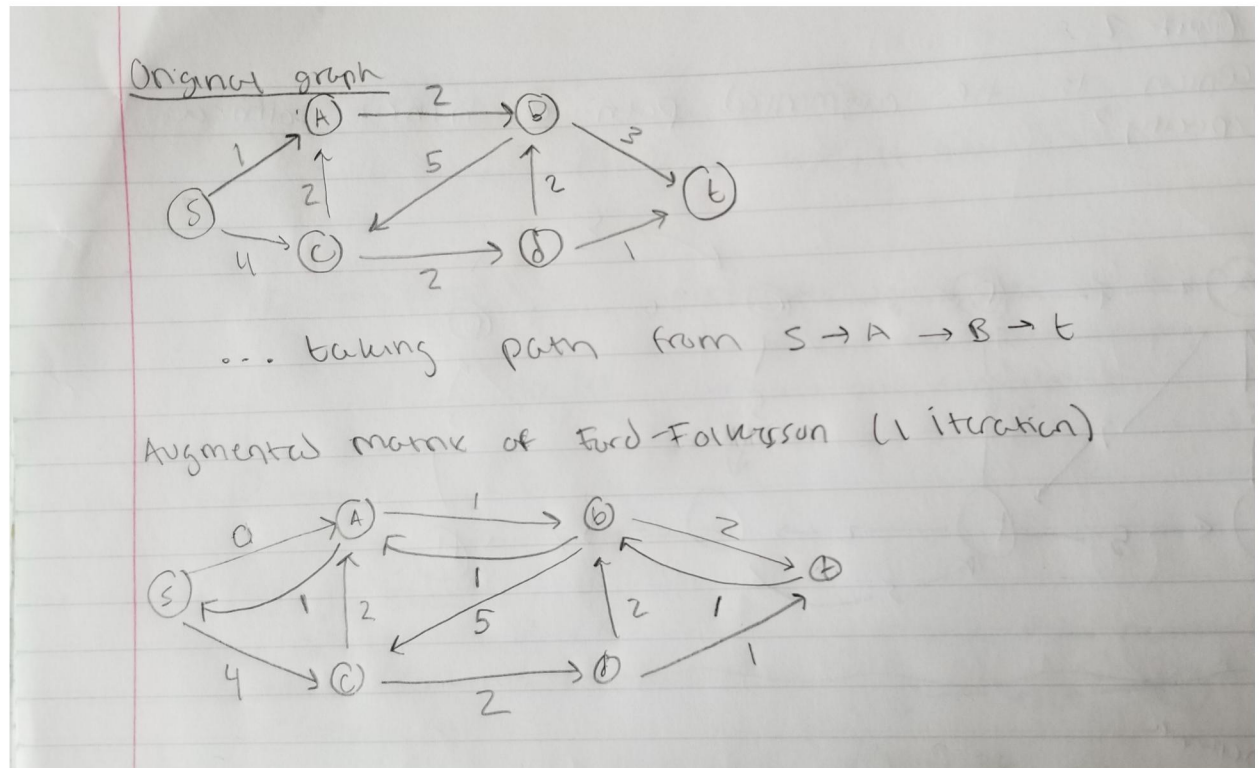 Original graph
A 2 B
1 5 3
S 2 2 t
4 C d 1
2
... taking path from S → A → B → t
Augmented matrix of Ford-Folkerson (1 iteration)
A 1 b
0 2
1 t
S 1 2 5 2 1
4 C D 1
2